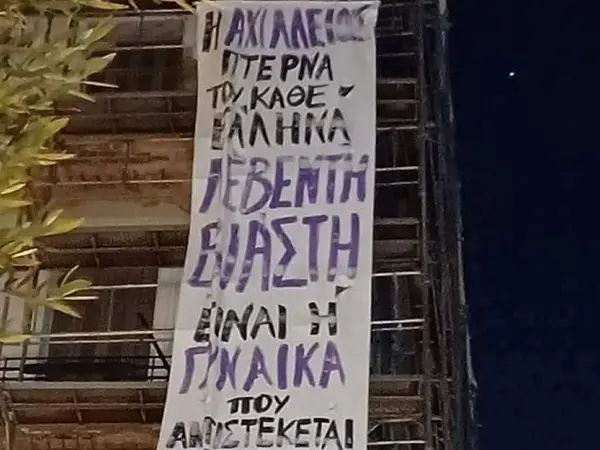 Η ΑΧΙΛΛΕΙΟΣ
ΠΤΕΡΝΑ
ΤΟΥ ΚΑΘΕ
ΕΛΛΗΝΑ
ΛΕΒΕΝΤΗ
ΒΙΑΣΤΗ
ΕΙΝΑΙ Η
ΓΥΝΑΙΚΑ
ΠΟΥ
ΑΝΤΙΣΤΕΚΕΤΑΙ